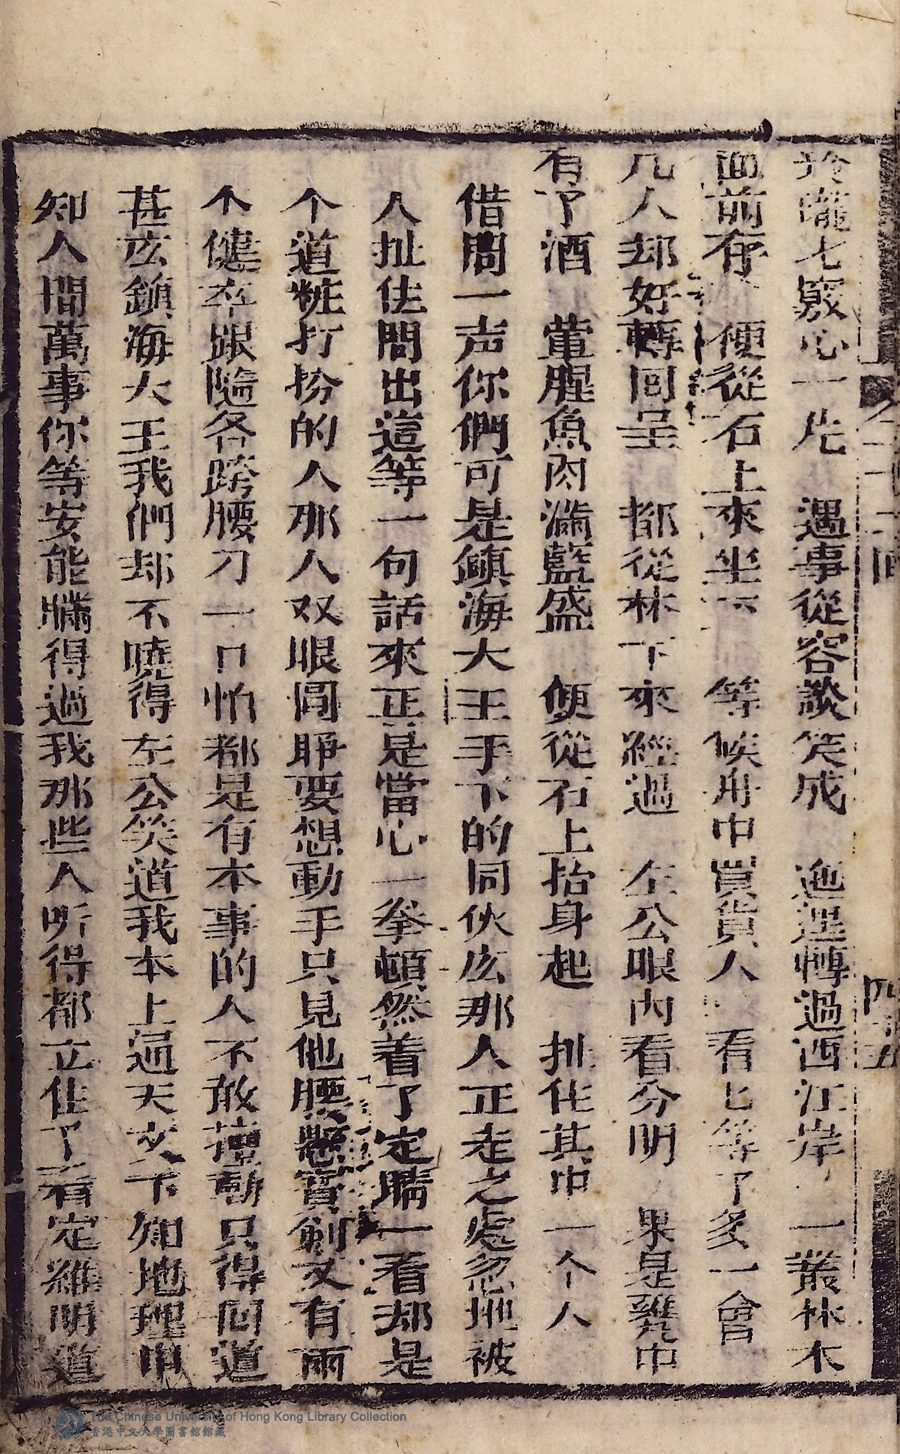 玲瓏七竅心一片　遇事從容談笑成　迤逞轉過西江岸　一叢林木
面前存　便從石上來坐下　等候舟中買貨人　看看等了多一會
几人却好轉囘呈　都從林下來經過　左公眼內看分明　果是甕中
有了酒　葷腥魚肉滿籃盛　便從石上抬身起　扯住其中一个人
借問一声你們可是鎮海大王手下的同伙庅那人正走之處忽地被
人扯住問出這等一句話來正是當心一拳頓然着了定睛一看却是
个道粧打扮的人那人双眼圓睜要想動手只見他腰懸寶劍又有兩
个健卒跟隨各跨腰刀一口怕都是有本事的人不敢擅動只得囘道
甚庅鎮海大王我們却不曉得左公笑道我本上通天文下知地理中
知人間萬事你等安能瞞得過我那些人听得都立住了看定羅明道
二十二囘
四十五
The Chinese University of Hong Kong Library Collection
香港中文大學圖書館館藏